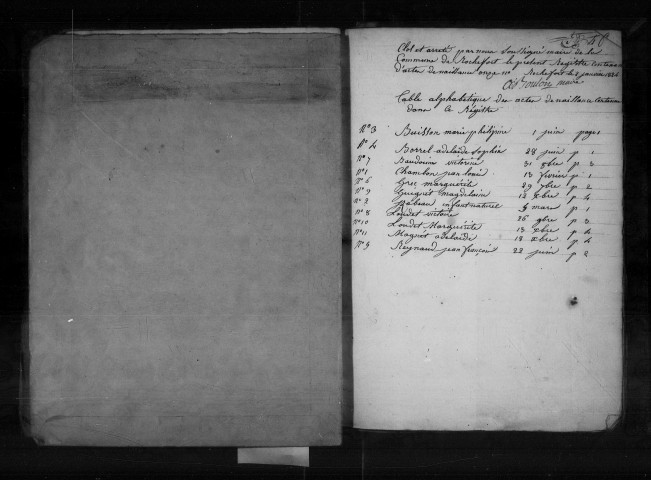 Clot et arreté par nous soussigné maire de la
Commune de Rochefort le présent Registre contenant
d'actes de naissance onze nos Rochefort le janvier
maire
Table alphabetique des actes de naissance contenus
dans le Régitre
N°3 Buisson marie philipine 1 juin page 1
N°4 Borrel adelaïde Sophie 28 juin p 1
N°7 Baudouin victorine 31 8bre p 3
N°1 Chambon jean louis 13 fevrier p 1
N°6 Grec marguerite 29 7bre p 2
N°9 magdelaine 12 xbre p 4
N°2 enfant naturel 5 mars p 1
N°8 Loudet victoire 26 9bre p 3
N°10 Loudet Marguerite 13 xbre p 4
N°11 Magnet adelaide 18 xbre p 4
N°5 Reynaud jean françois 22 juin p 2